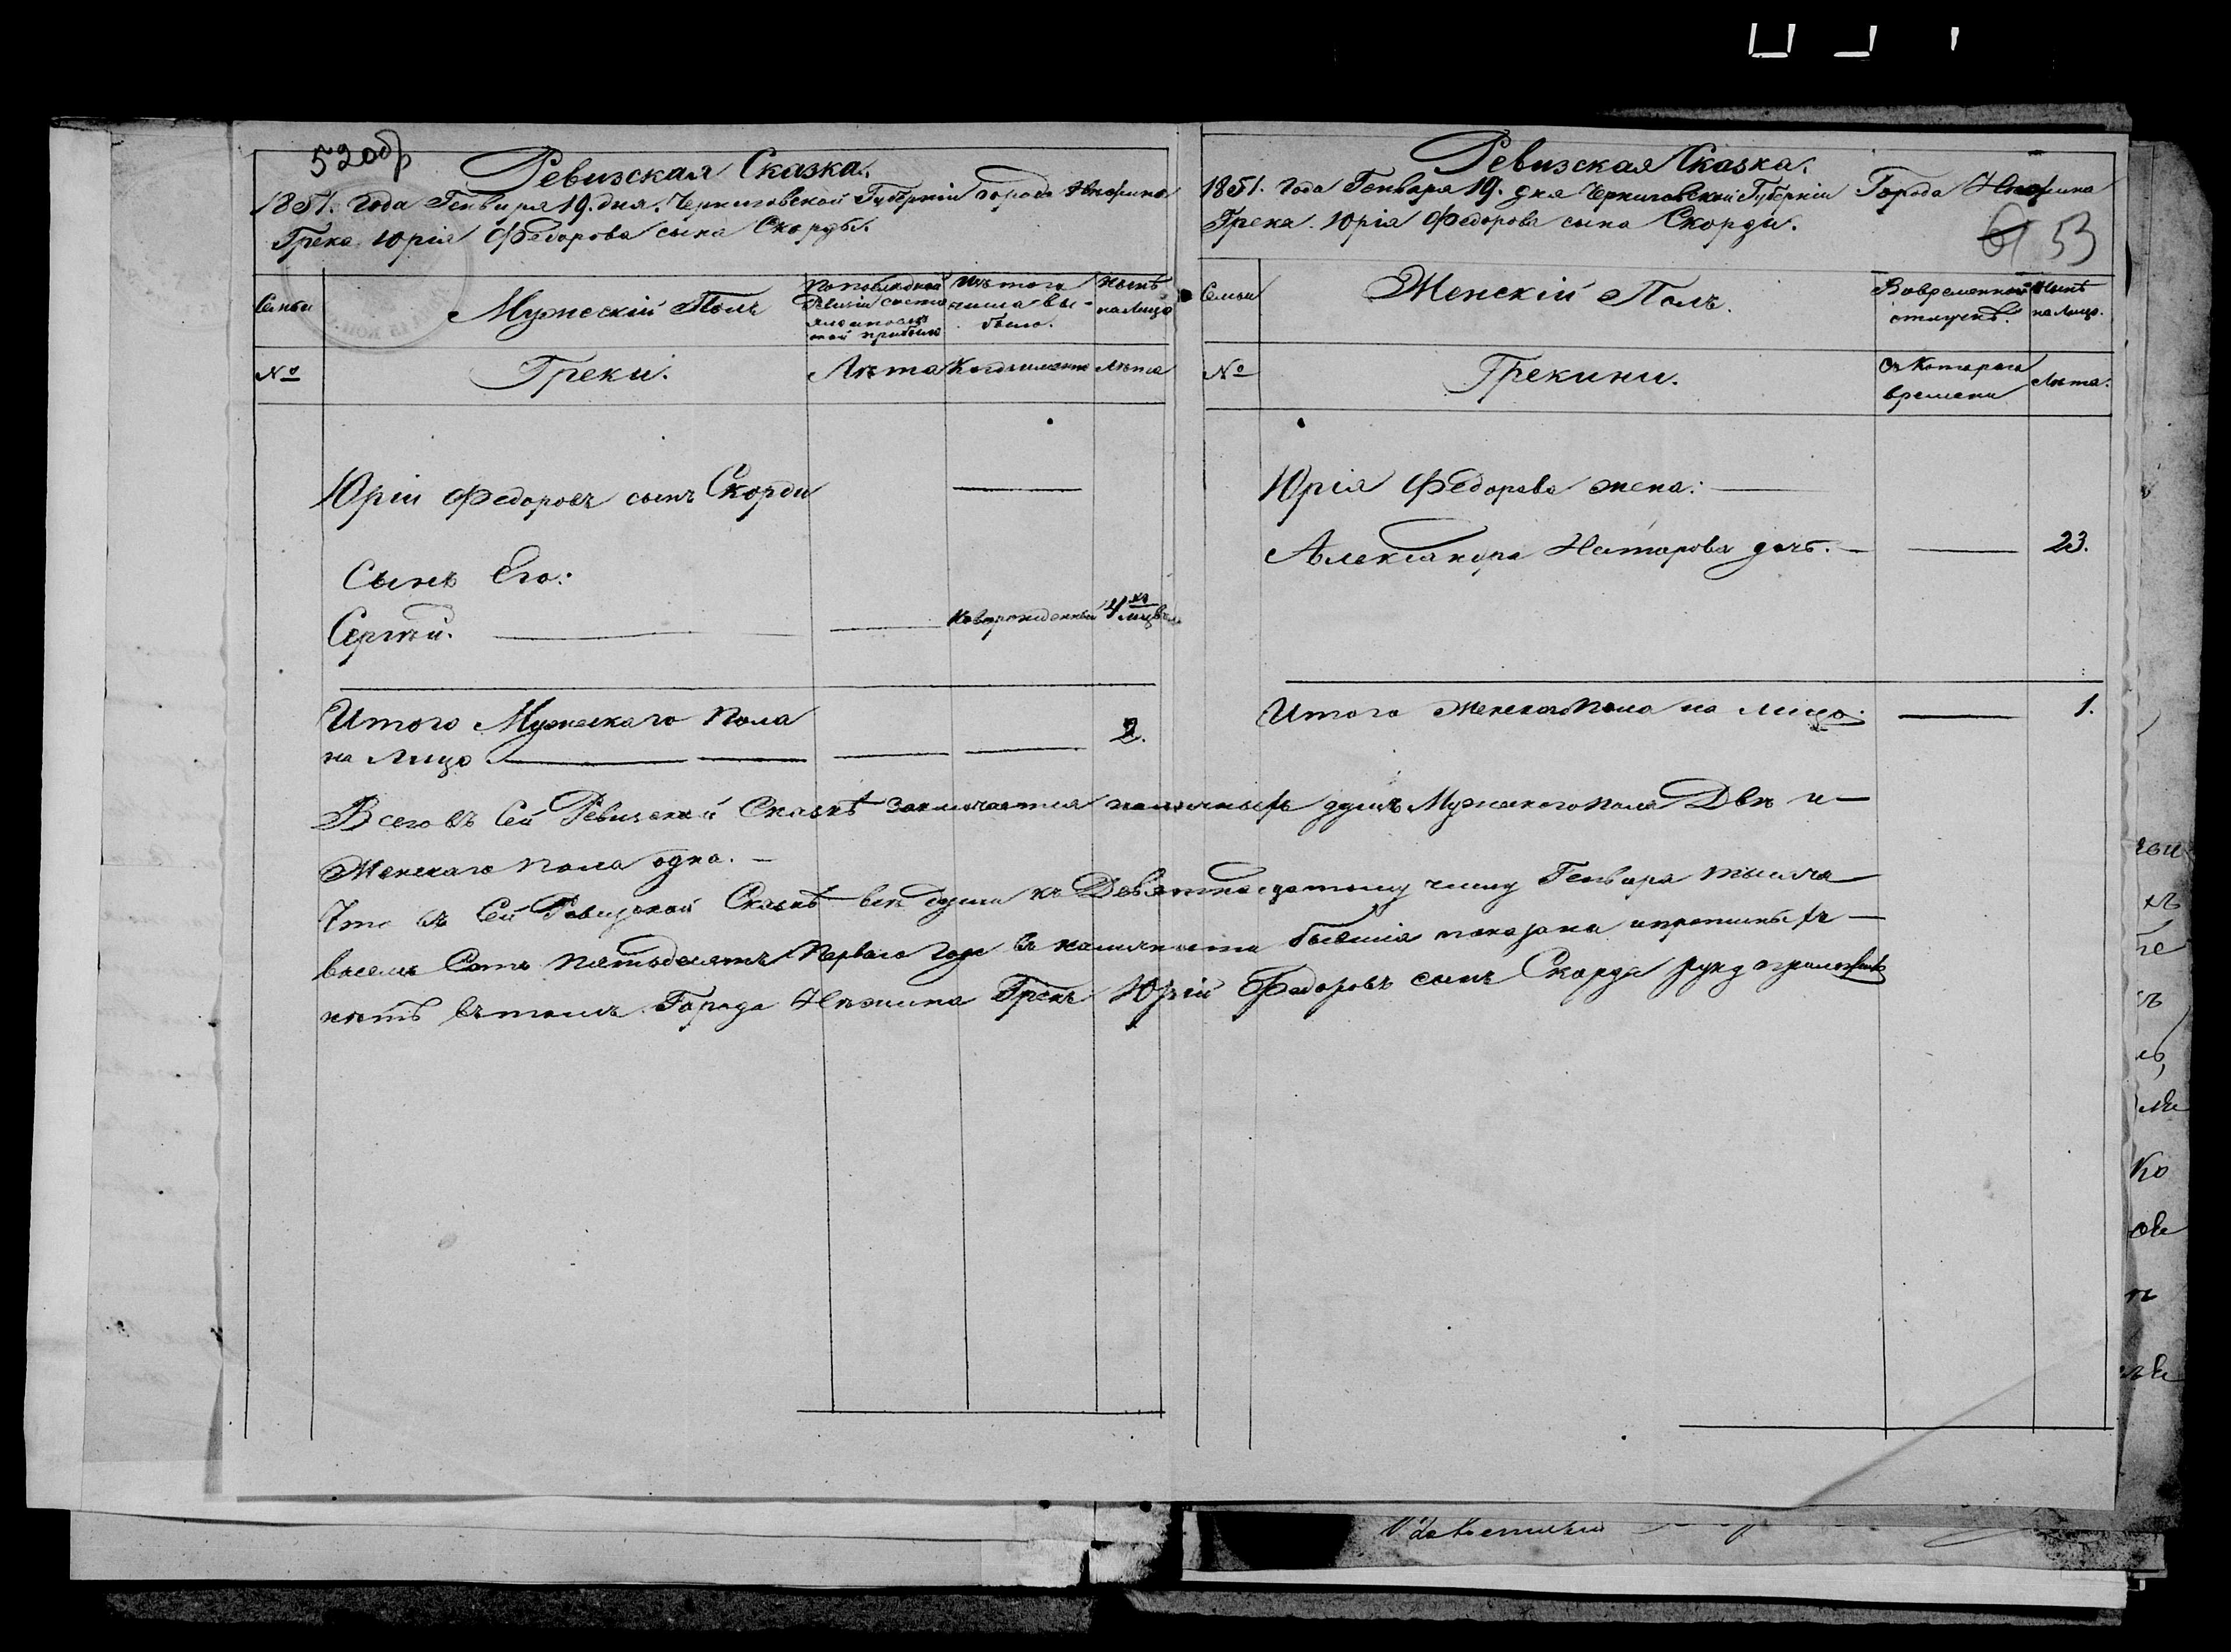 52 об
Ревизская Сказка.
1851. Года Генваря 19. дня. Черниговской Губерніи города Нѣжина
Грека Юрія Федорова сына Скорды.
Семьи
Мужескій Полъ
По последней Ревизіи состояло и после той прибыло
Изъ того числа выбыло.
Нынѣ на Лицо
№
Греки.
Лѣта
Когда именно
Лѣта
Юрій Федоровъ сынъ Скорди
Сынъ Его:
Сергѣй.
новорожденный
4 хъ
Итого Мужескаго пола
на Лицо
2.
Ревизская Сказка.
1851. Года Генваря 19. дня Черниговской Губерніи Города Нѣжина
Грека. Юрія Федорова сына Скорди.
53
Семьи
Женскій Полъ.
Во временной отлучкѣ.
Нынѣ на Лицо.
№
Грекини.
Съ Котораго времени
Лѣта.
Юрія Федорова жена:
Александра Нетарова дочь.
23.
Итого женскаго пола на лицо.
1.
Всего въ Сей Ревизской Сказкѣ заключается наличныхъ душъ Мужескаго пола Двѣ и
Женскаго пола одна.
Что въ Сей Ревизской Сказкѣ всѣ души къ Девятнадцатому числу Генваря тысяча
восемь Сотъ пятьдесятъ Перваго года въ наличности бывшіа показаны и прописныхъ
нѣтъ въ томъ Города Нѣжина Грекъ Юрій Федоровъ сынъ Скорда руку приложилъ